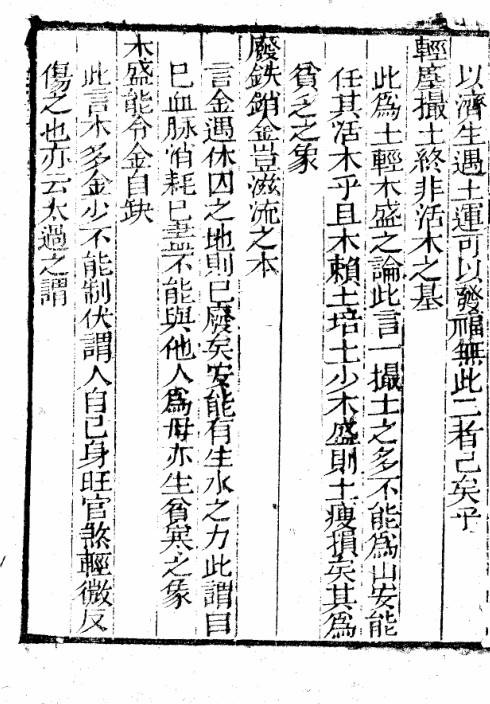 以濟生遇土運可以發福無此二者已矣乎
輕塵撮土終非活木之基
此為土輕木盛之論此言一撮土之多不能為山安能
任其活木乎且木賴土培土少木盛則土瘦損矣其為
貧乏之象
廢鉄銷金豈滋流之本
言金遇休囚之地則已廢矣安能有生水之力此謂自
已血脉消耗已盡不能與他人為母亦生貧窶之象
木盛能令金自缺
此言木多金少不能制伏謂人自己身旺官煞輕微反
傷之也亦云太過之謂